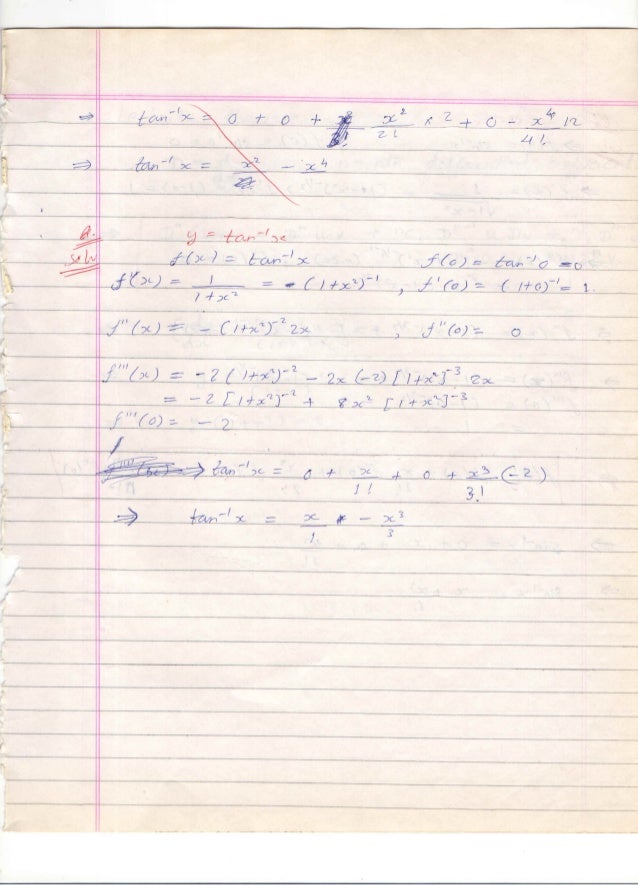 ⇒ tan⁻¹x = 0 + 0 + x²/2! × 2 + 0 - x⁴/4! 12
⇒ tan⁻¹x = x²/ - x⁴
Q. y = tan⁻¹x
Solu f(x) = tan⁻¹x f(0) = tan⁻¹0 = 0
f'(x) = 1/1+x² = (1+x²)⁻¹ , f'(0) = (1+0)⁻¹ = 1.
f''(x) = -(1+x²)⁻² 2x , f''(0) = 0
f'''(x) = -2(1+x²)⁻² - 2x(-2)[1+x²]⁻³ 2x
= -2[1+x²]⁻² + 8x²[1+x²]⁻³
f'''(0) = -2
⇒ tan⁻¹x = 0 + x/1! + 0 + x³/3! (-2)
⇒ tan⁻¹x = x/1 - x³/3